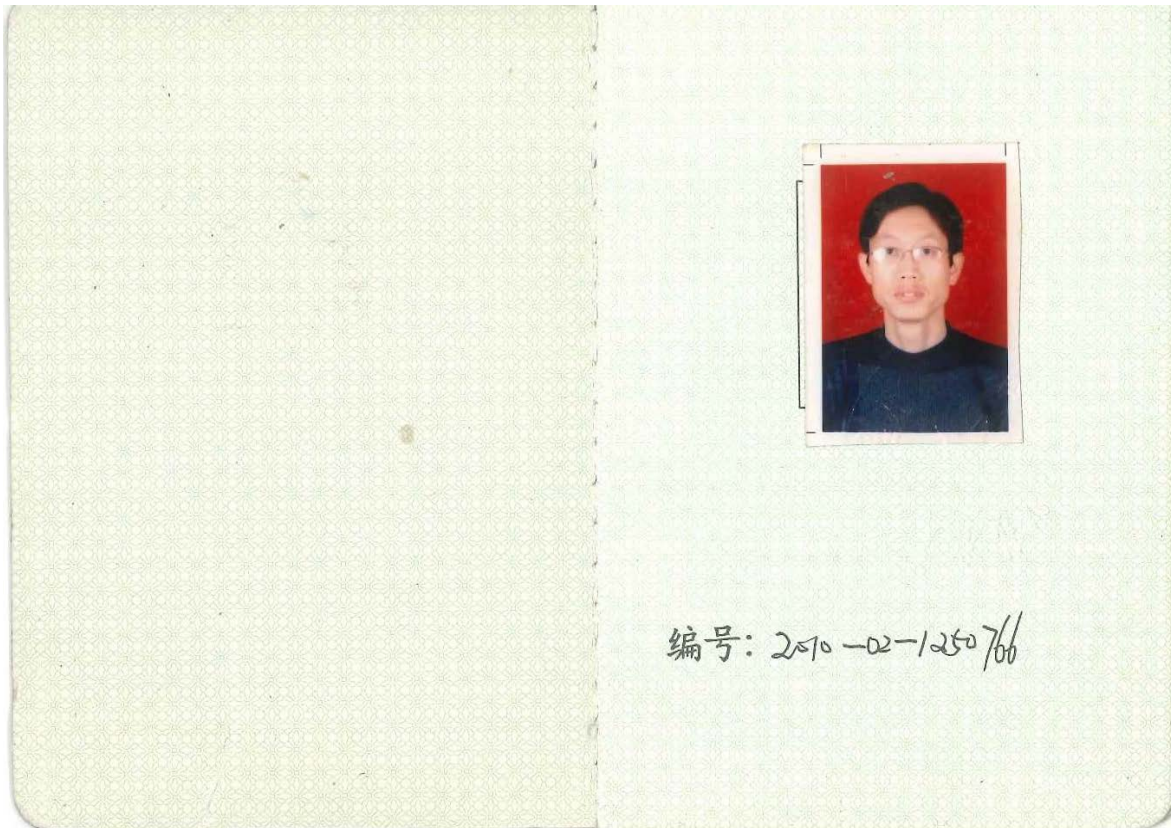 编号：2010-02-1250766